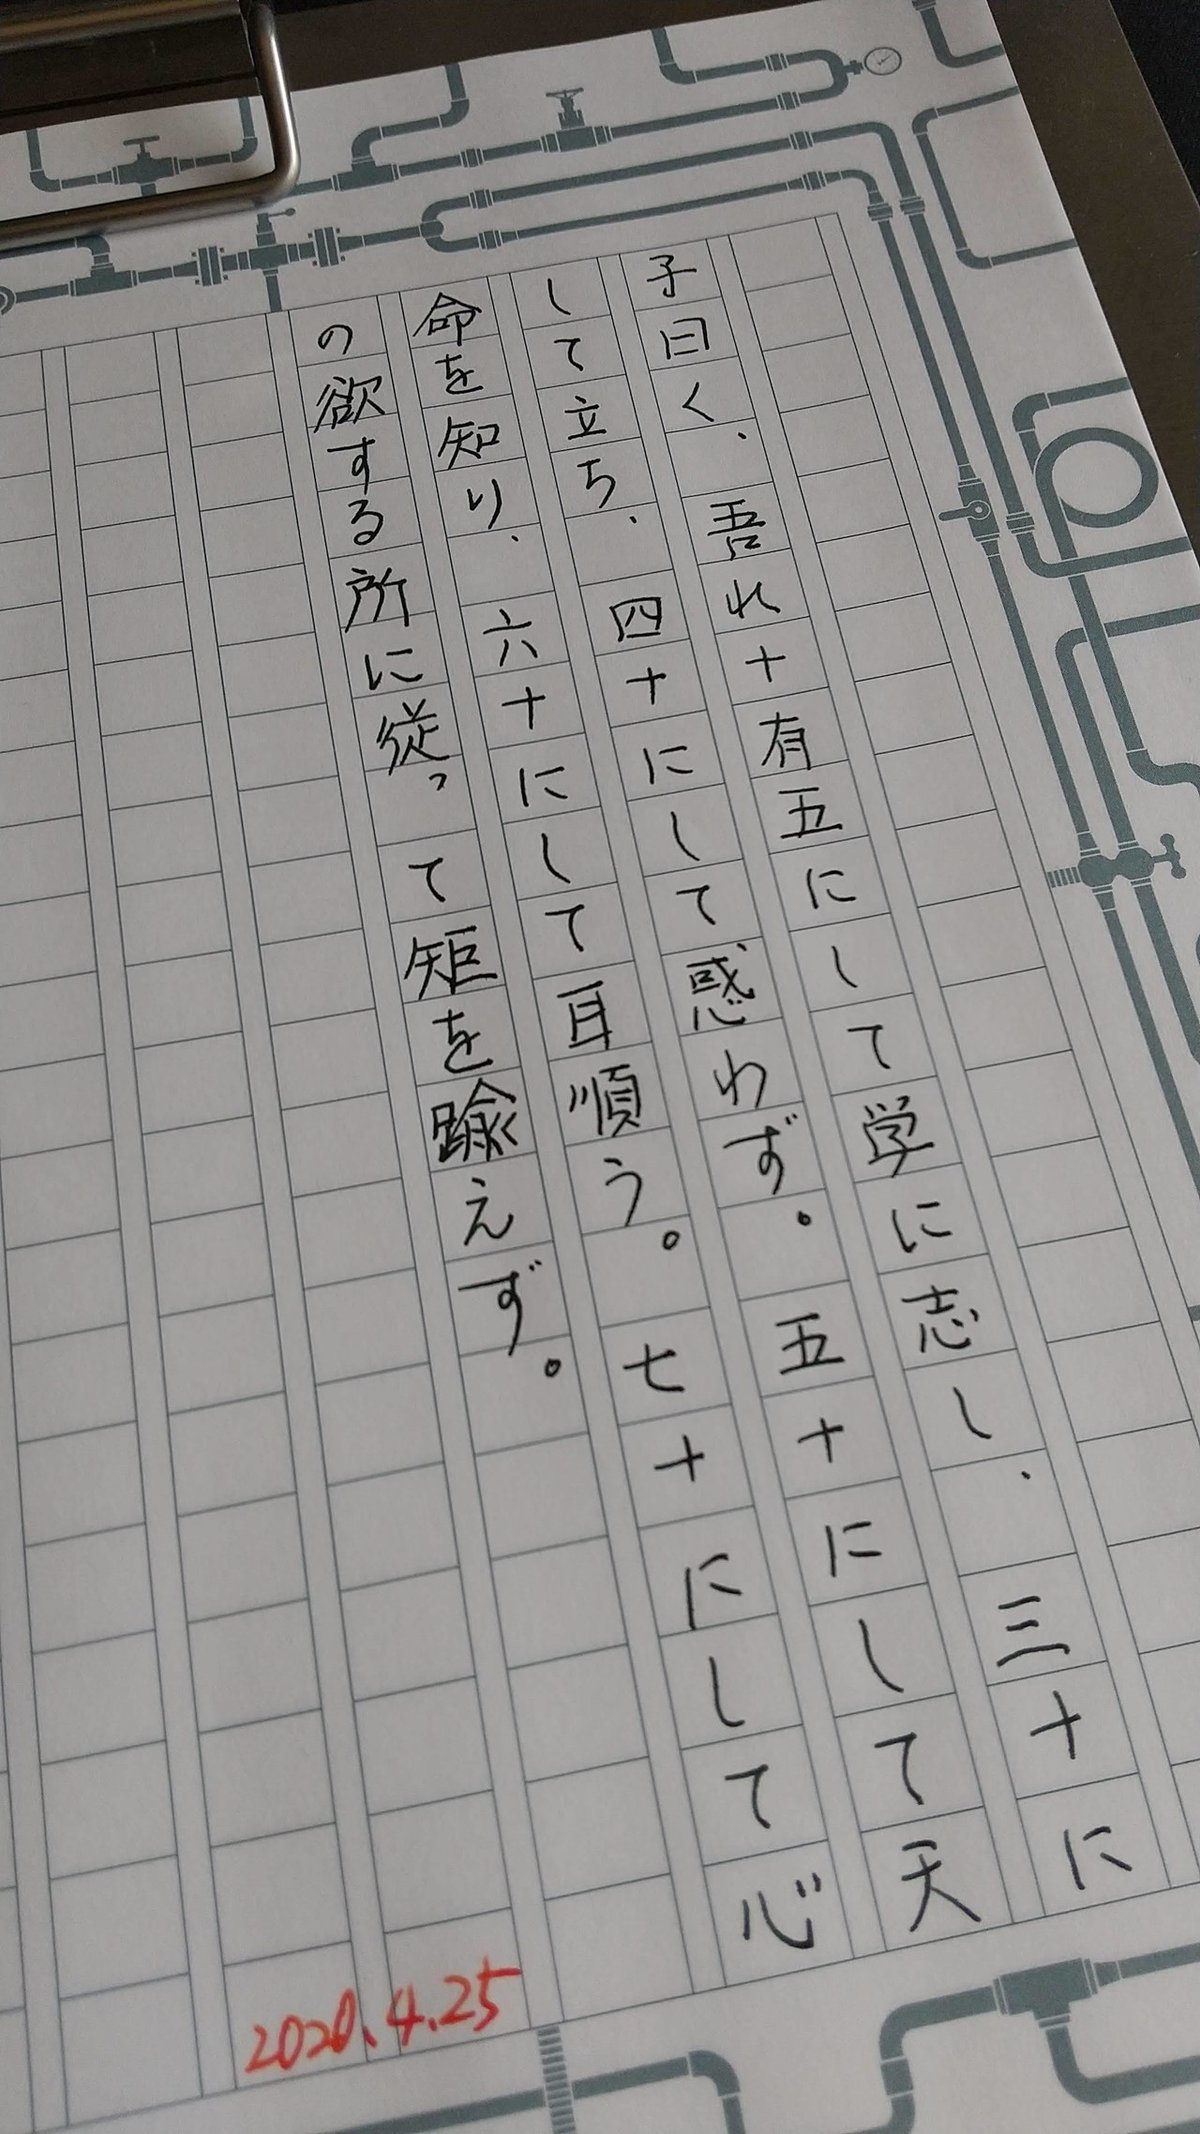 子曰く、吾れ十有五にして学に志し、三十に
して立ち、四十にして惑わず。五十にして天
命を知り、六十にして耳順う。七十にして心
の欲する所に従って矩を踰えず。
2020.4.25